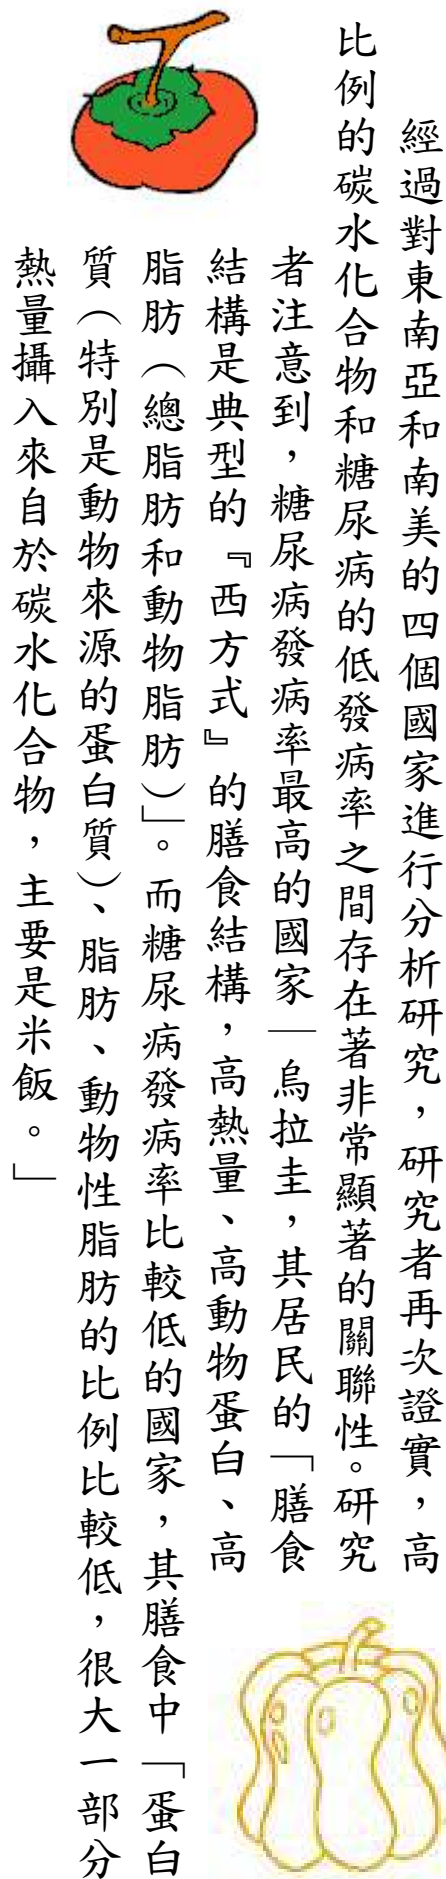 經過對東南亞和南美的四個國家進行分析研究，研究者再次證實，高
比例的碳水化合物和糖尿病的低發病率之間存在著非常顯著的關聯性。研究
者注意到，糖尿病發病率最高的國家—烏拉圭，其居民的「膳食
結構是典型的『西方式』的膳食結構，高熱量、高動物蛋白、高
脂肪（總脂肪和動物脂肪）」。而糖尿病發病率比較低的國家，其膳食中「蛋白
質（特別是動物來源的蛋白質）、脂肪、動物性脂肪的比例比較低，很大一部分
熱量攝入來自於碳水化合物，主要是米飯。」